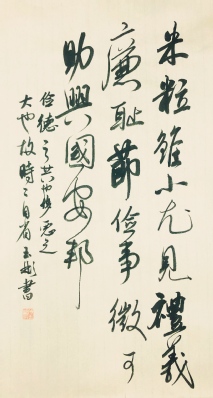 米粒雖小尤見禮義
廉耻節儉事微可
助興國安邦
儉德之共也侈惡之
大也故時二自省玉彬書